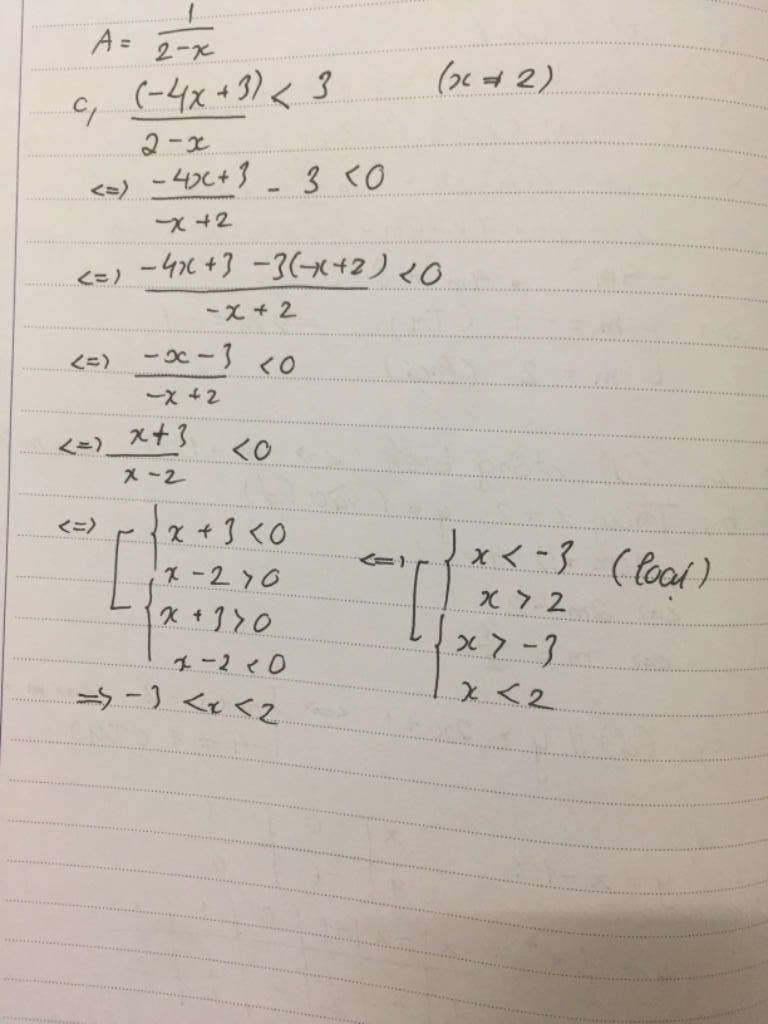 A = 1/(2-x)
c, (-4x+3)/(2-x) < 3 (x ≠ 2)
<=> (-4x+3)/(-x+2) - 3 < 0
<=> (-4x+3 -3(-x+2))/(-x+2) < 0
<=> (-x-3)/(-x+2) < 0
<=> (x+3)/(x-2) < 0
<=> [ { x+3 < 0 <=> [ { x < -3 (loại)
x-2 > 0 x > 2
{ x+3 > 0 { x > -3
x-2 < 0 x < 2
=> -3 < x < 2